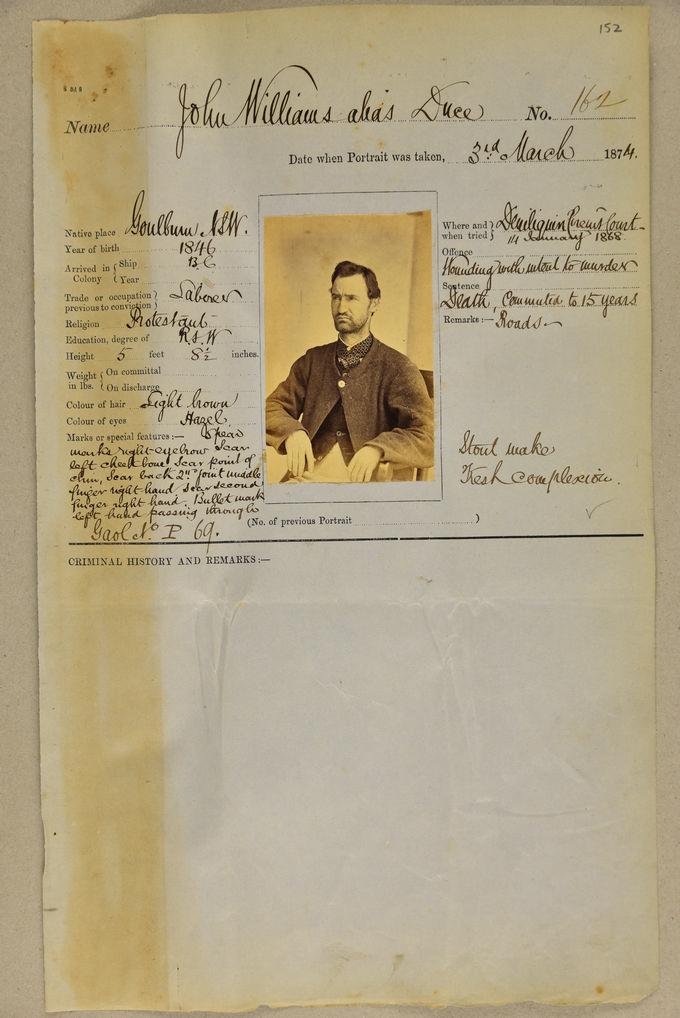 152
Name John Williams alias Duce No. 162
Date when Portrait was taken, 3rd March 1874.
Native place Goulburn N.S.W.
Year of birth 1846
Arrived in Colony { Ship B.C
Year
Trade or occupation previous to conviction } Laborer
Religion Protestant
Education, degree of R & W
Height 5 feet 8½ inches.
Weight in lbs. { On committal
On discharge
Colour of hair Light brown
Colour of eyes Hazel
Marks or special features:— Spear
marks right eyebrow Scar
left cheek bone, Scar point of
chin, Scar back 2nd joint middle
finger right hand, Scar second
finger right hand. Bullet mark
left hand passing through
Gaol No P 69.
Where and when tried } Deniliquin Circuit Court
14 January 1868
Offence
Wounding with intent to murder
Sentence
Death, Commuted to 15 years
Remarks:— Roads.
Stout make
Fresh complexion.
(No. of previous Portrait )
CRIMINAL HISTORY AND REMARKS:—